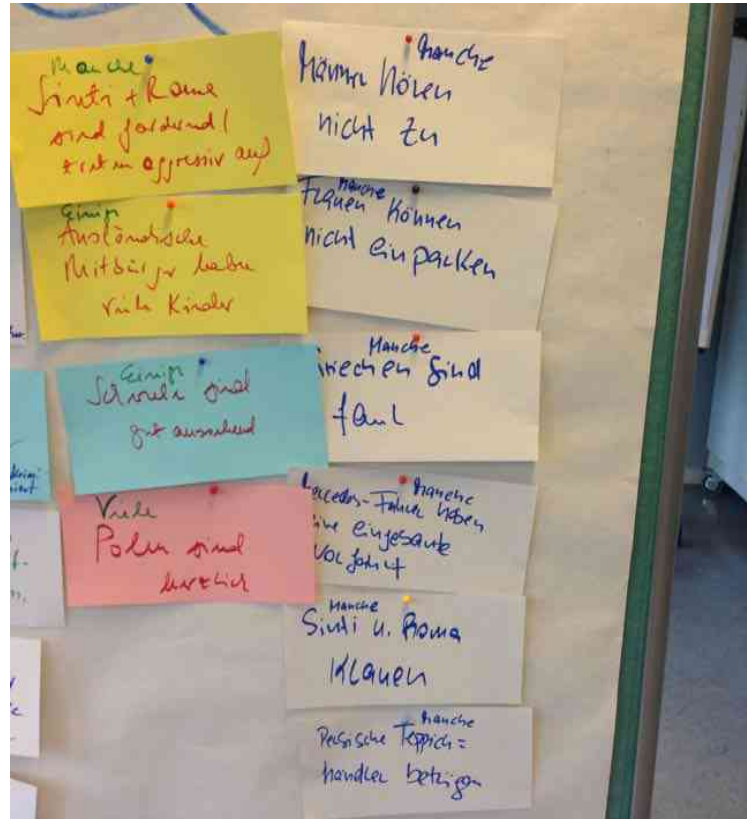 Manche
Sinti + Roma
sind fordernd /
treten aggressiv auf
Einige
Ausländische
Mitbürger haben
viele Kinder
Einige
Schwule sind
gut aussehend
Viele
Polen sind
herzlich
Manche
Männer hören
nicht zu
Manche
Frauen können
nicht einpacken
Manche
Griechen sind
faul
Manche
Mercedes-Fahrer haben
eine eingebaute
Vorfahrt
Manche
Sinti u. Roma
klauen
Manche
Persische Teppich=
händler betrügen